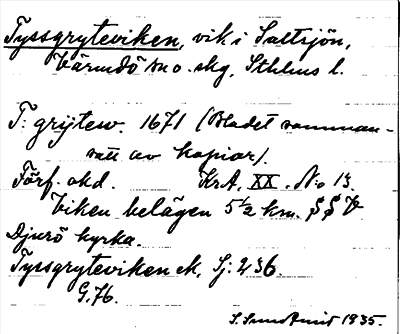 Tyssgryteviken, vik i Saltsjön,
Värmdö sn o. skg, Sthlms l.
T: grÿtew. 1671 (Bladet samman-
satt av kopior).
Förf. okd. KrA. XX. No 13.
Viken belägen 5 1/2 km. SSV
Djurö kyrka.
Tyssgryteviken ek. Sj: 236.
G. 76.
S. Sundkvist 1935.